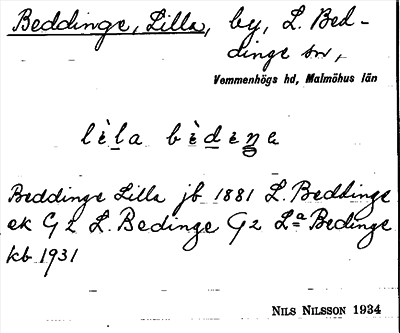 Beddinge, Lilla, by, L. Bed-
dinge sn,
Vemmenhögs hd, Malmöhus län
lè̱la bè̱deŋe
Beddinge Lilla jb 1881 L. Beddinge
ek G2 L. Bedinge G2 Lª Bedinge
kb 1931
NILS NILSSON 1934